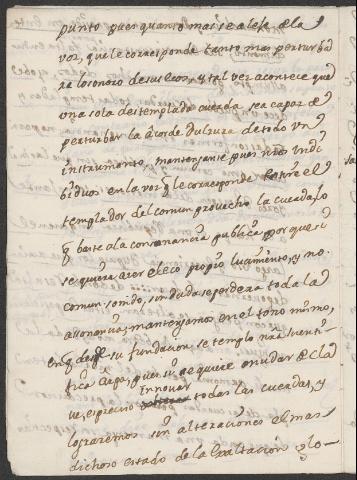 punto pues quanto mas se aleja de la
voz, que le corresponde tanto mas perturba
ra lo sonoro de sus ecos, y tal vez acontece que
una sola destemplada cuerda sea capaz de
perturbar la acorde dulzura de todo un
instrumento, mantenganse pues nros indi
biduos en la voz q̃ le corresponde
templador del comun provecho la cuerda, lo
q̃ baste a la consonancia publica, porque si
se quiere acer el eco propio lucimiento, y no
comun sonido, sin duda se perdera toda la
consonancia; mantengamos en el tono mismo,
en q̃ desde su fundacion se templo nra
pues si se quiere mudar de cla
ve, es preciso Innovar todas las cuerdas, y
lograremos sin alteraciones el mas
dichoso estado de la exaltacion